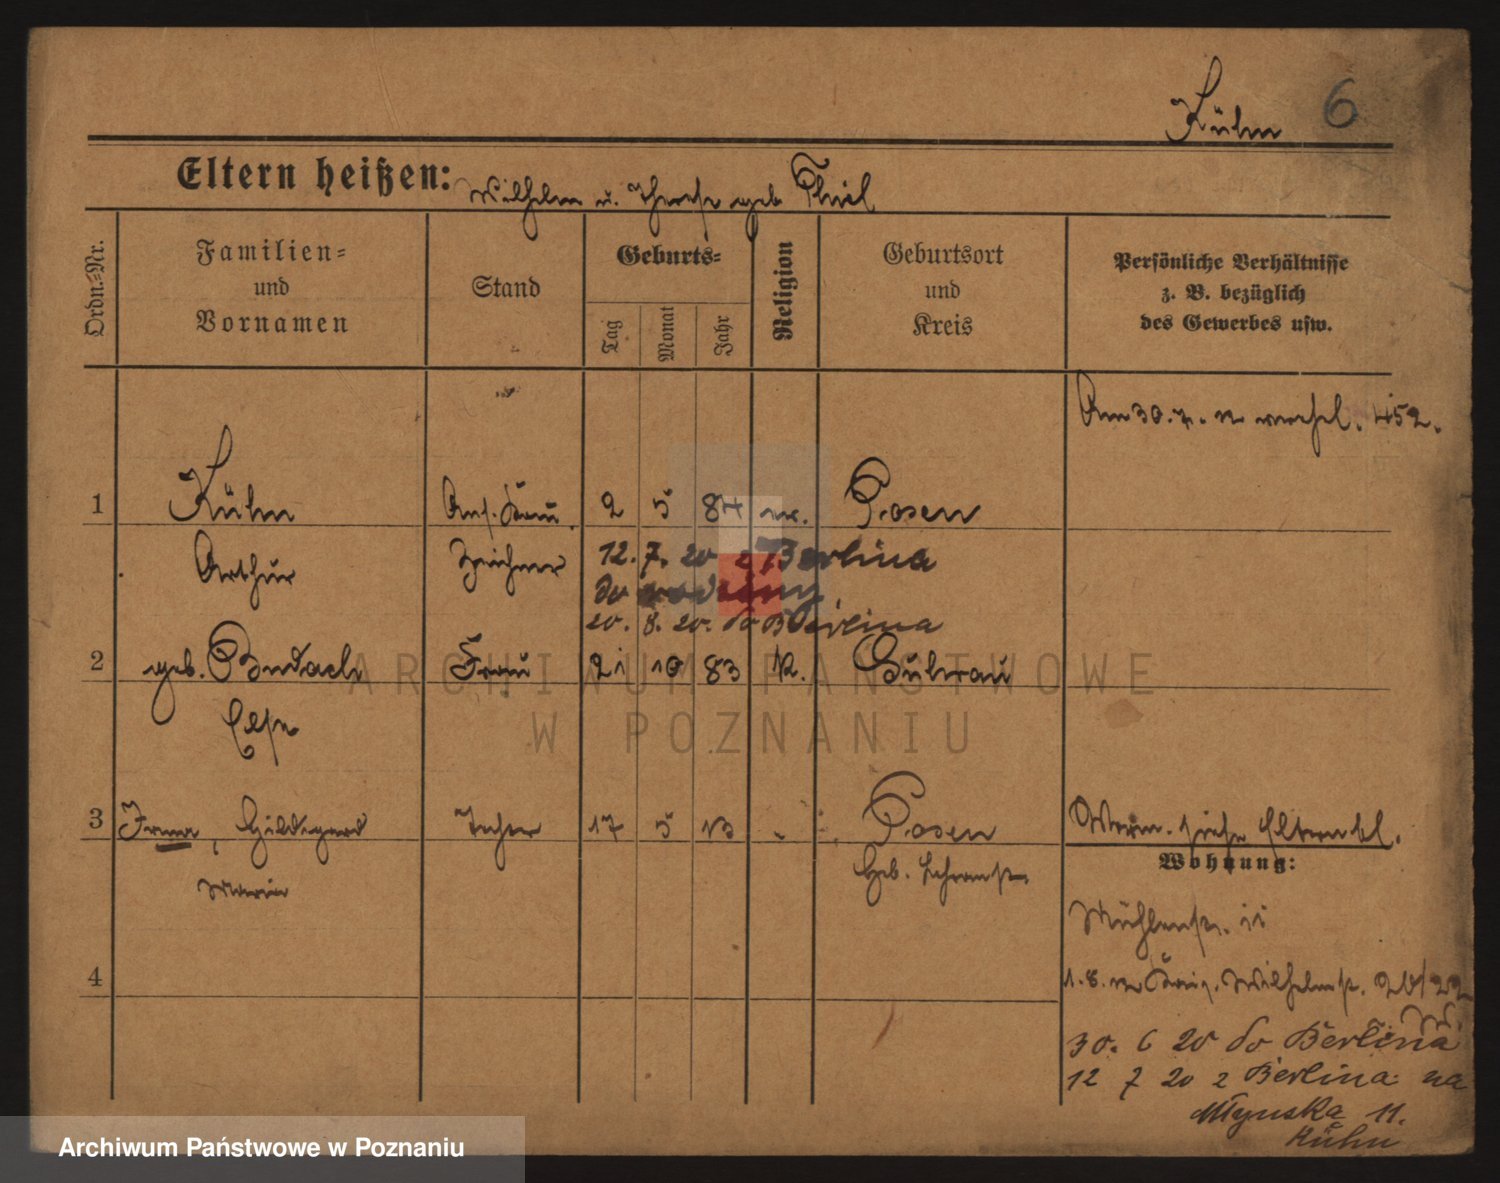 Kühn 6
Eltern heißen: Wilhelm u. Therese geb Thiel
Ordn.=Nr.
Familien=
und
Vornamen
Stand
Geburts=
Tag Monat Jahr
Religion
Geburtsort
und
Kreis
Persönliche Verhältnisse
z. B. bezüglich
des Gewerbes usw.
Am 30. 7. 12 452.
1 Kühn 2 5 84 ev. Posen
Arthur Zeichner 12. 7. 20 z Berlina
do rodziny
20. 8. 20. do Berlina
2 geb. Budach Frau 21 10 83 K. Guhrau
Else
3 Irma, Hildegard Tochter 17 5 13 Posen
Marie Geb.
Verm. siehe Elternbl.
Wohnung:
Mühlenstr. 11
1. 8. 12 Wilhelmstr.
4
30. 6 20 do Berlina
12 7 20 z Berlina na
Młyńska 11.
Kühn
ARCHIWUM PAŃSTWOWE
W POZNANIU
Archiwum Państwowe w Poznaniu